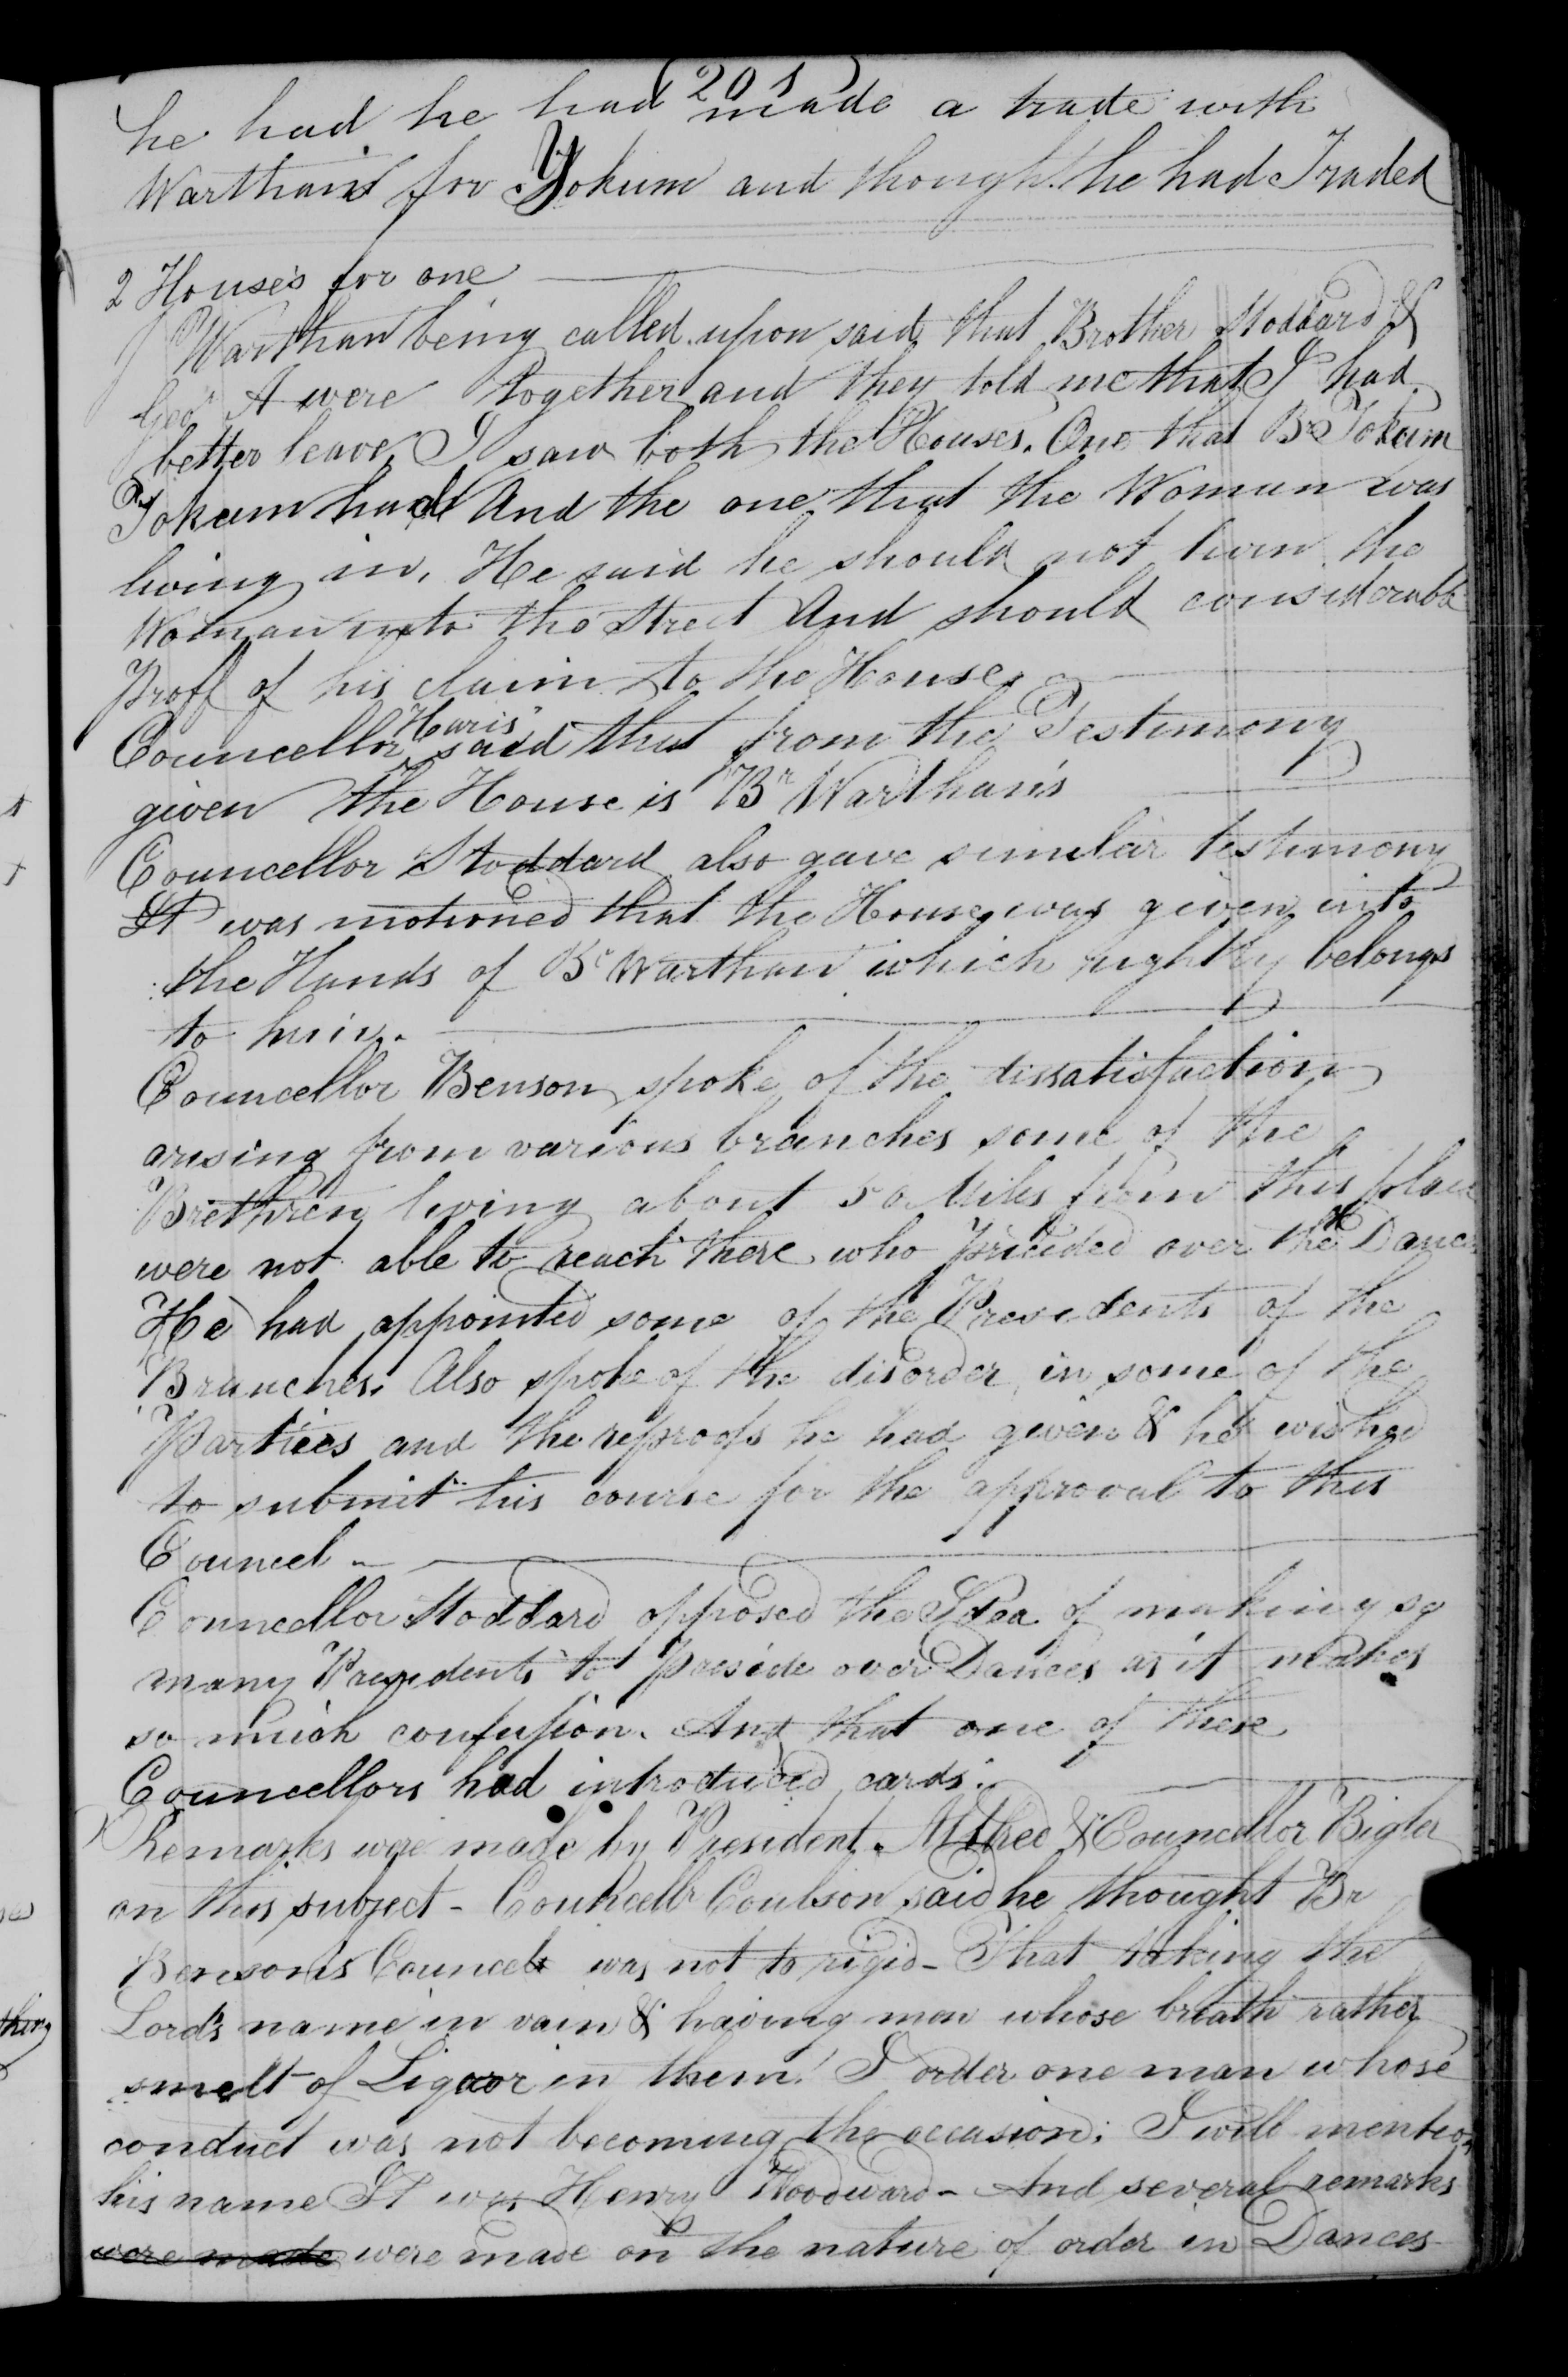 (201)
he had he had made a trade with
Warthan for Yokum and though he had Traded
2 Houses for one
Warthan being called upon said that Brother Stoddard &
Geo A were together and they told me that I had
better leave, I saw both the Houses. One that Br Yokum
Yokum had And the one that the Woman was
living in. He said he should not turn the
Woman into the Street And should considerable
Proff of his claim to the House.
Councellor "Haris" said that from the Testimony
given the House is Br Warthan's
Councellor Stoddard also gave similar testimony
It was motioned that the House was given into
the Hands of Br Warthan which rightly belongs
to him.
Councellor Benson spoke of the dissatisfaction
arising from various branches some of the
Brethren living about 50 Miles from this place
were not able to reach there who presided over the Dances
He had appointed some of the Presidents of the
Branches. Also spoke of the disorder in some of the
Parties and the reproofs he had given & he wished
to submit his course for the approval to this
Councel -
Councellor Stoddard opposed the Idea of making so
many Presidents to Preside over Dances as it makes
so much confusion. And that one of these
Councellors had introduced cards.
Remarks were made by President & Councellor Bigler
on this subject - Councellr Coulson said he thought Br
Benson's Councel was not to rigid - That taking the
Lord's name in vain & having men whose breath rather
smelt of Liquor in them! I order one man whose
conduct was not becoming the occasion; I will mention
his name It was Henry Woodward - And several remarks
were made were made on the nature of order in Dances